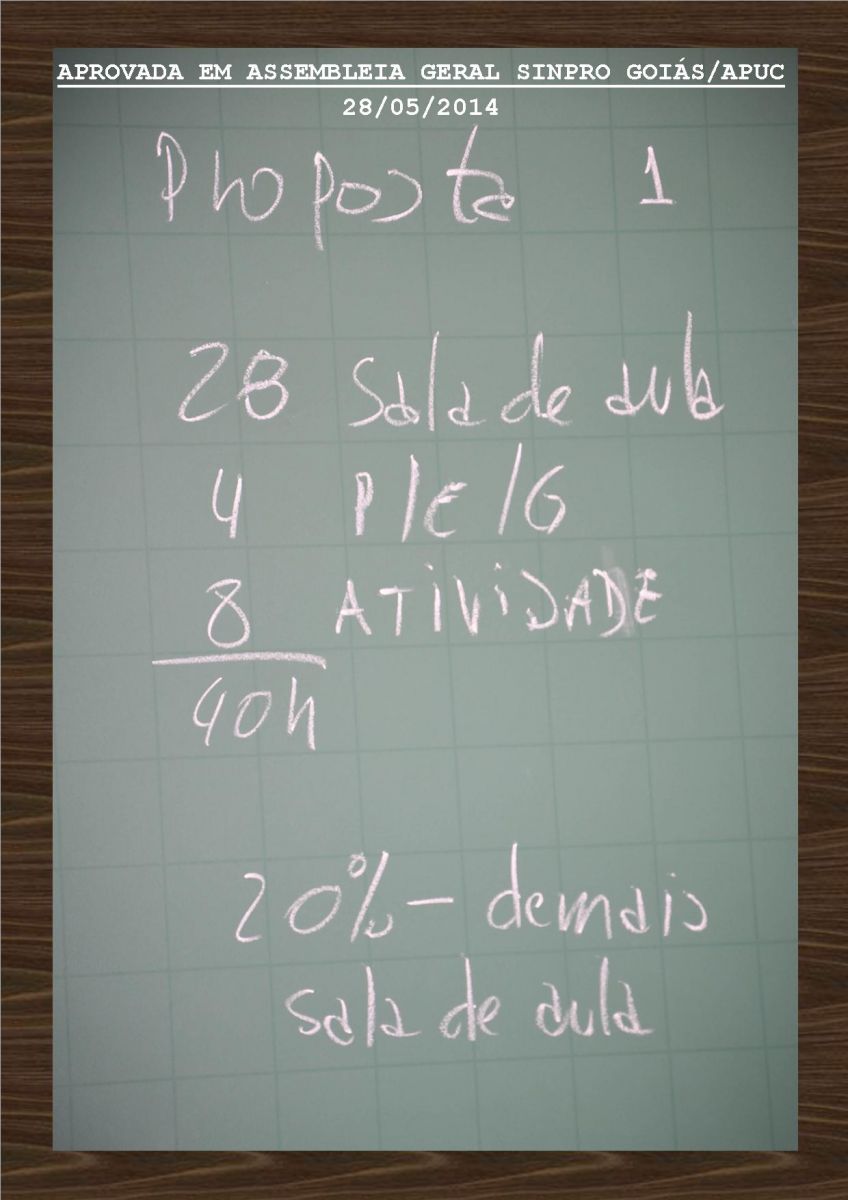 APROVADA EM ASSEMBLEIA GERAL SINPRO GOIÁS/APUC
28/05/2014
Proposta 1
28 Sala de aula
4 P/E/G
8 ATIVIDADE
40h
20% - demais
sala de aula